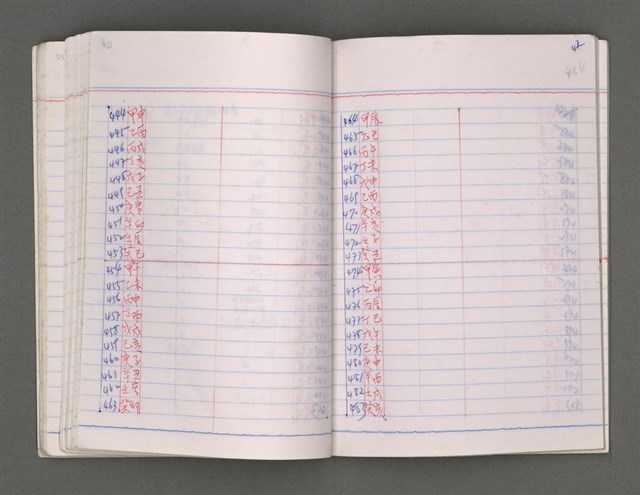 444 甲申
445 乙酉
446 丙戌
447 丁亥
448 戊子
449 己丑
450 庚寅
451 辛卯
452 壬辰
453 癸巳
454 甲午
455 乙未
456 丙申
457 丁酉
458 戊戌
459 己亥
460 庚子
461 辛丑
462 壬寅
463 癸卯
464 甲辰
465 乙巳
466 丙午
467 丁未
468 戊申
469 己酉
470 庚戌
471 辛亥
472 壬子
473 癸丑
474 甲寅
475 乙卯
476 丙辰
477 丁巳
478 戊午
479 己未
480 庚申
481 辛酉
482 壬戌
483 癸亥